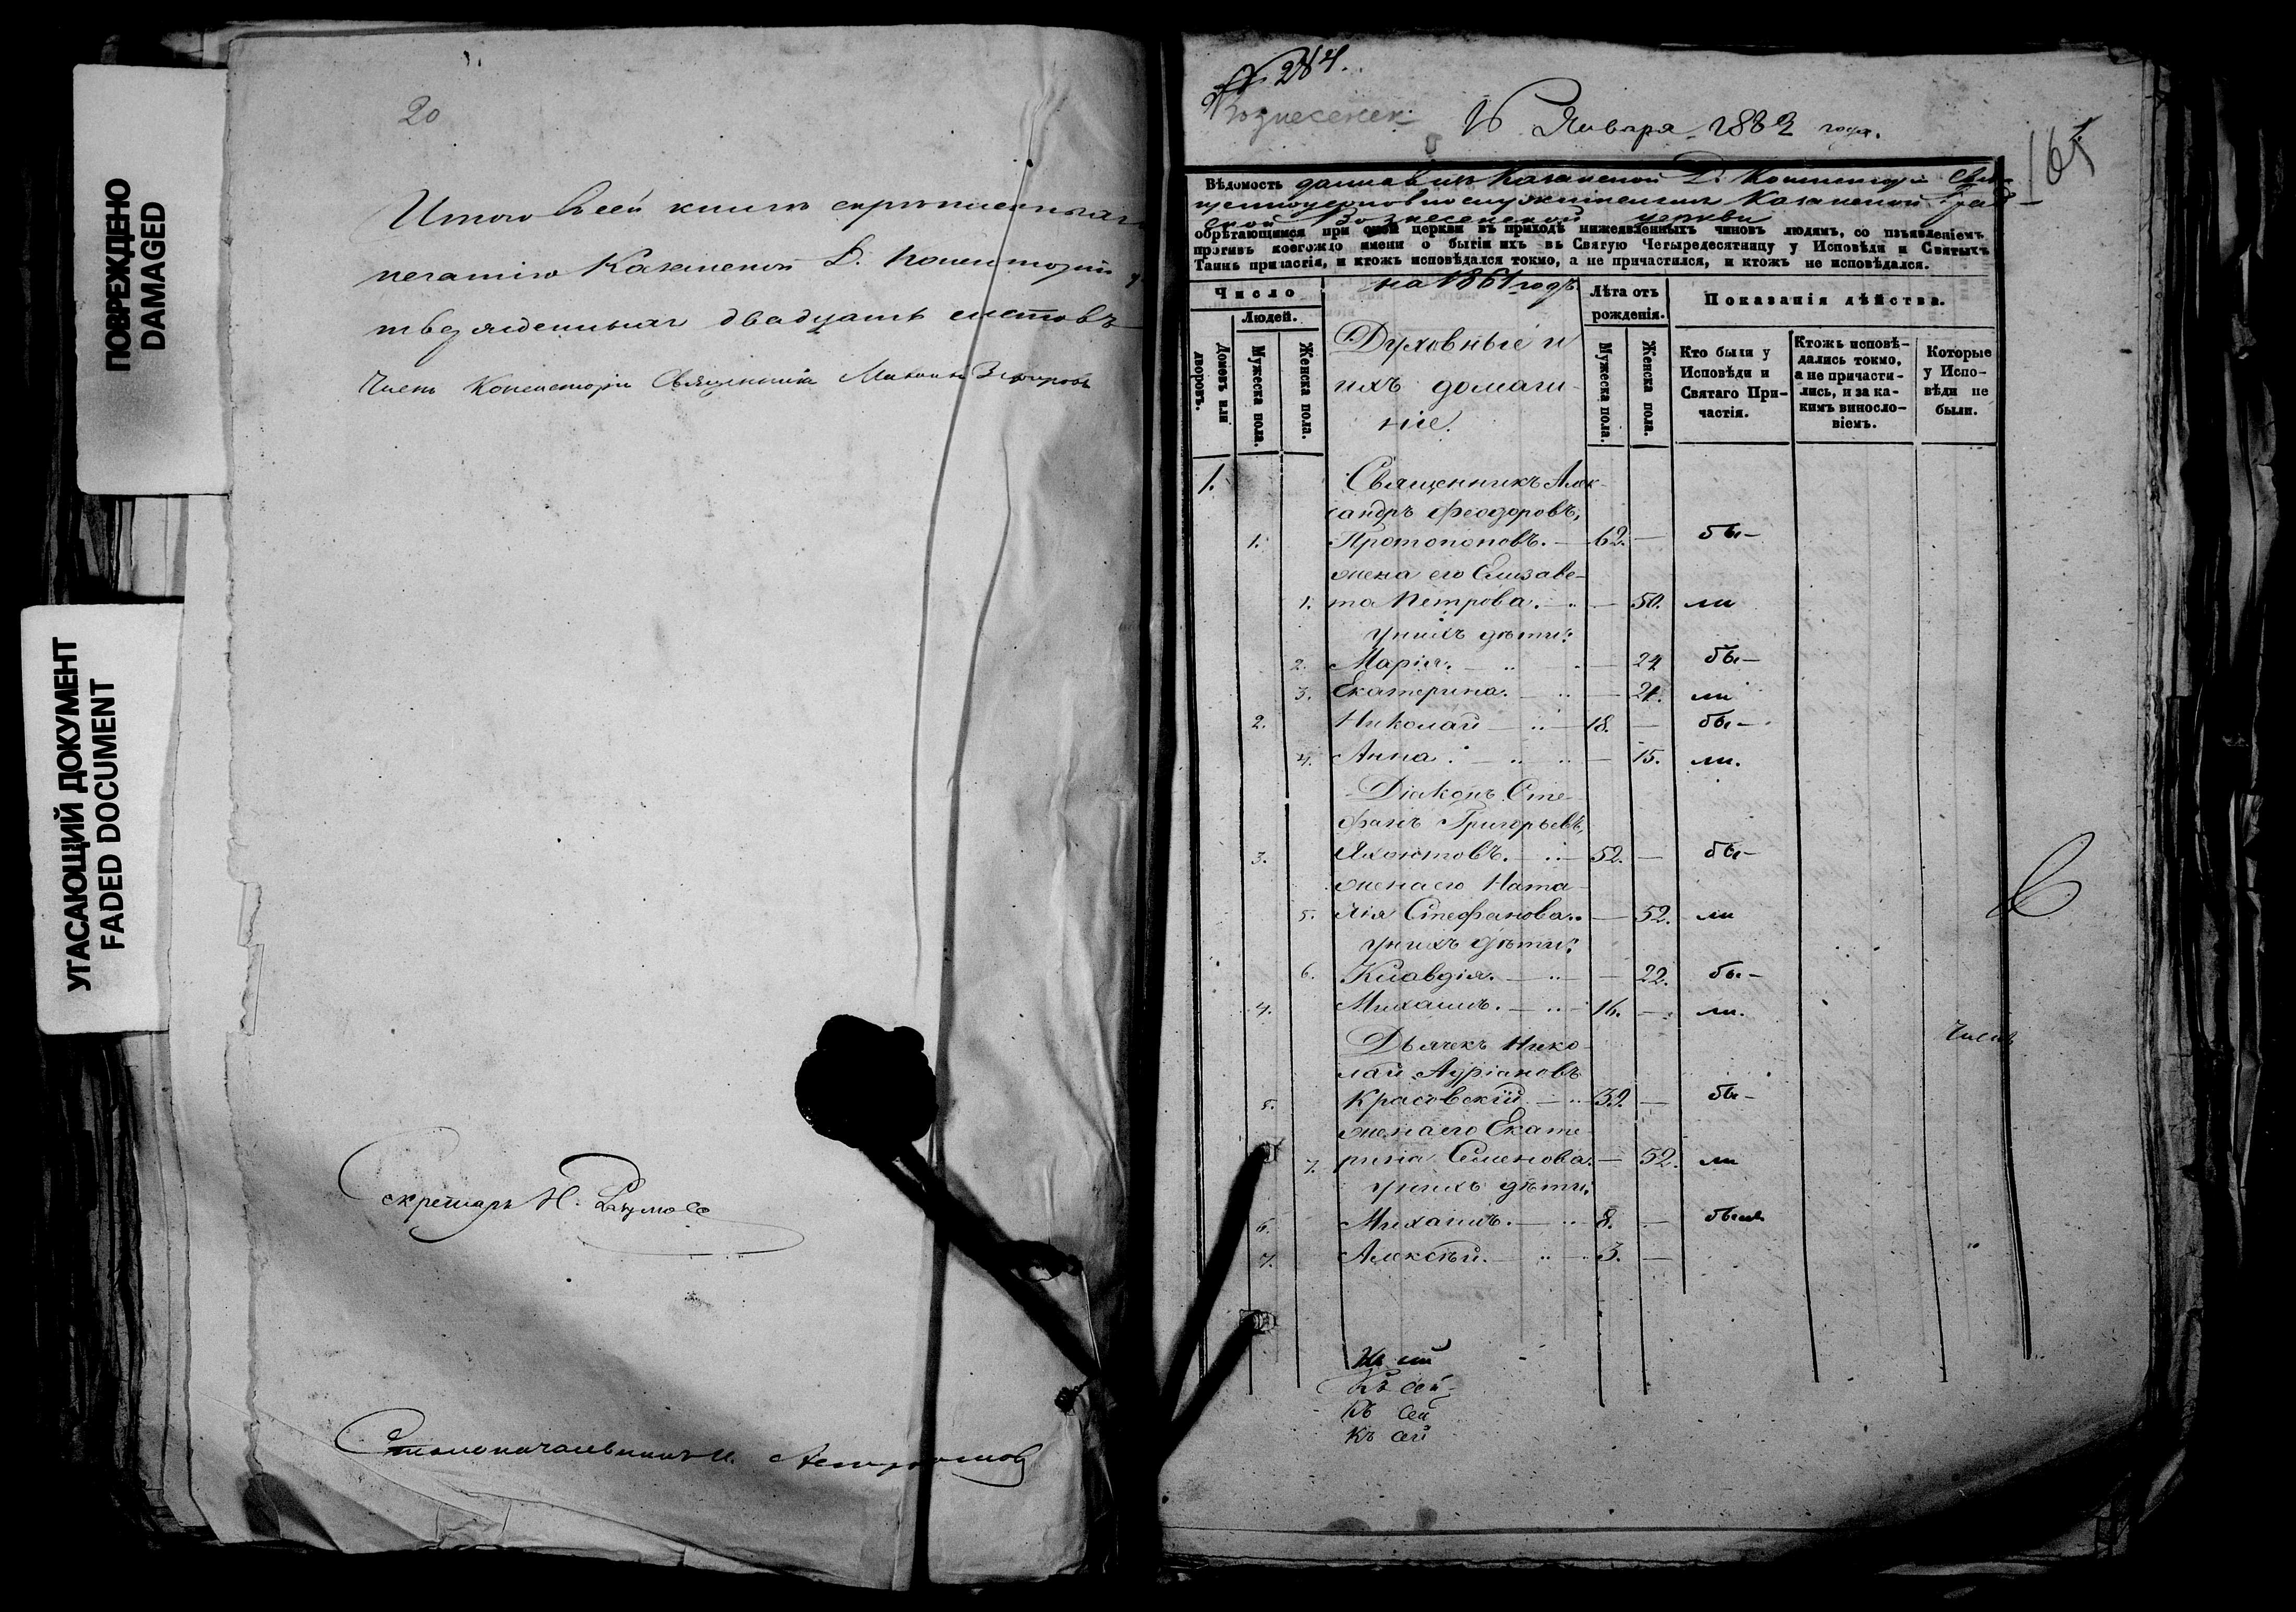 ПОВРЕЖДЕНО
DAMAGED
УГАСАЮЩИЙ ДОКУМЕНТ
FADED DOCUMENT
20
Итого въ сей книгѣ скрѣпленныхъ
печатію Казанской Д. Консисторіи у
твержденныхъ двадцать листовъ
Членъ Консисторіи Священникъ
Секретарь Н.
Столоначальникъ
№ 284.
Вознесенск.
Января года.
Вѣдомость данная изъ Казанской Д. Консисторіи Свя-
щенноцерковнослужителямъ Казанской Град-
ской Вознесенской церкви
обрѣтающимся при оной церкви въ приходѣ нижеявленныхъ чиновъ людямъ, со изъявленіемъ
противъ коегождо имени о бытіи ихъ въ Святую Четыредесятницу у Исповѣди и Святыхъ
Таинъ причастія, и ктожъ исповѣдался токмо, а не причастился, и ктожъ не исповѣдался.
на 1861 годъ
Число
Людей.
Домовъ или дворовъ.
Мужеска пола.
Женска пола.
Духовные и
ихъ домаш-
ніе.
Лѣта отъ
рожденія.
Мужеска пола.
Женска пола.
Показанія дѣйства.
Кто были у
Исповѣди и
Святаго При-
частія.
Ктожъ исповѣ-
дались токмо,
а не причасти-
лись, и за ка-
кимъ винosло-
віемъ.
Которые
у Испо-
вѣди не
были.
1. Священникъ Алек-
сандръ Феодоровъ,
1. Протопоповъ. — 62. — бы-
жена его Елизаве-
1. та Петрова. — 50. ли
у нихъ дѣти:
2. Марія. — 24 бы-
3. Екатерина. — 21. ли
2. Николай — 18. — бы-
4. Анна. — 15. ли.
Діаконъ Сте-
фанъ Григорьевъ,
3. Яхонтовъ. — 52. — бы-
жена его Ната-
5. лія Стефанова. — 52. ли
у нихъ дѣти:
6. Клавдія. — 22. бы-
4. Михаилъ. — 16. — ли.
Членъ
Дьячекъ Нико-
лай Адріановъ
5. Красовскій — 39. — бы-
жена его Екате-
7. рина Семенова. — 52. ли
у нихъ дѣти:
6. Михаилъ. — 8. — былъ
7. Алексѣй. — 3. —
Къ сей
Къ сей
Къ сей
Къ сей